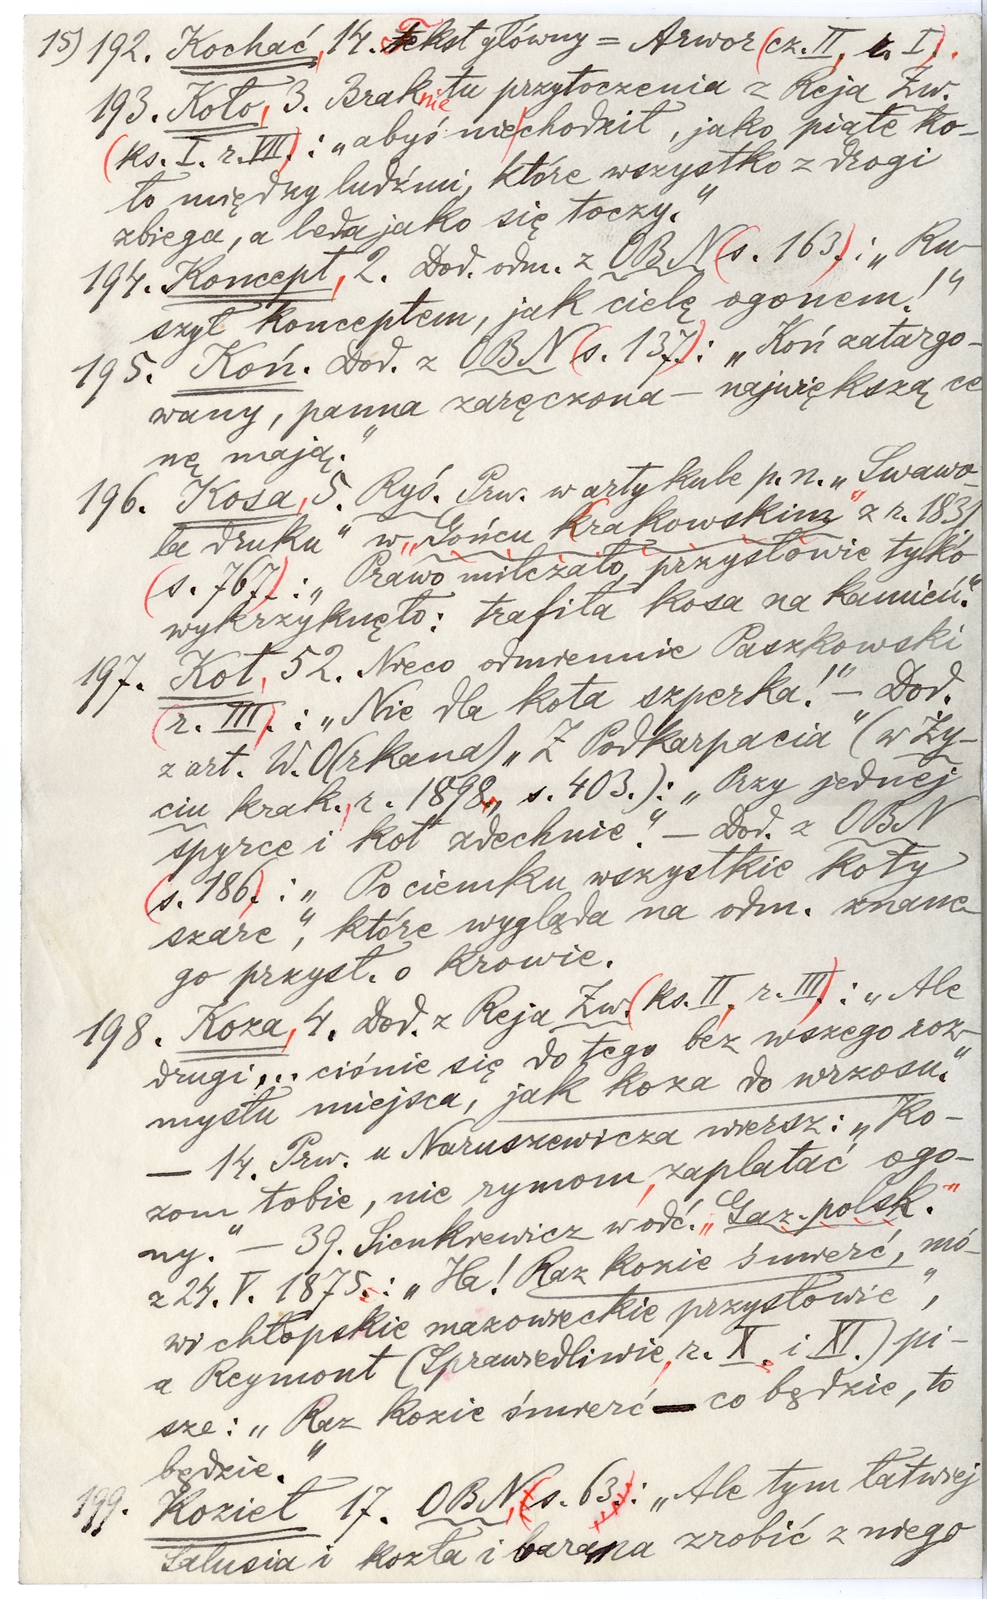 15) 192. Kochać, 14. Tekst główny = Arwor (cz. II, r. I).
193. Koło, 3. Brak tu przytoczenia z Reja Zw.
(ks. I. r. VII): „abyś nie chodził, jako piąte ko-
ło między ludźmi, które wszystko z drogi
zbiega, a leda jako się toczy."
194. Koncept, 2. Dod. odm. z OBN (s. 163): „Ru-
szył konceptem, jak cielę ogonem!"
195. Koń. Dod. z OBN (s. 137): „Koń zatargo-
wany, panna zaręczona – największą ce
nę mają."
196. Kosa, 5. Ryś. Prw. w artykule p. n. „Swawo-
la druku" w „Gońcu krakowskim" z r. 1831
(s. 767): „Prawo milczało, przysłowie tylko
wykrzyknęło: trafiła kosa na kamień."
197. Kot, 52. Nieco odmiennie Paszkowski
(r. III): „Nie dla kota szperka!" – Dod.
z art. W. O(rkana) „Z Podkarpacia" (w Ży-
ciu krak., r. 1898, s. 403.): „Przy jednej
spyrce i kot zdechnie." – Dod. z OBN
(s. 186): „Po ciemku wszystkie koty
szare", które wygląda na odm. znane-
go przysł. o krowie.
198. Koza, 4. Dod. z Reja Zw. (ks. II, r. III): „Ale
drugi... ciśnie się do tego bez wszego roz-
mysłu miejsca, jak koza do wrzosu."
– 14. Prw. u Naruszewicza wiersz: „Ko-
zom tobie, nie rymom, zaplatać ogo-
ny." – 39. Sienkiewicz w odć. „Gaz. polsk."
z 24. V. 1875.: „Ha! Raz kozie śmierć, mó-
wi chłopskie mazowieckie przysłowie",
a Reymont (Sprawiedliwie, r. X. i XI.) pi-
sze: „Raz kozie śmierć – co będzie, to
będzie."
199. Kozieł 17. OBN (s. 63): „Ale tym łatwiej
Salusia i kozła i barana zrobić z niego